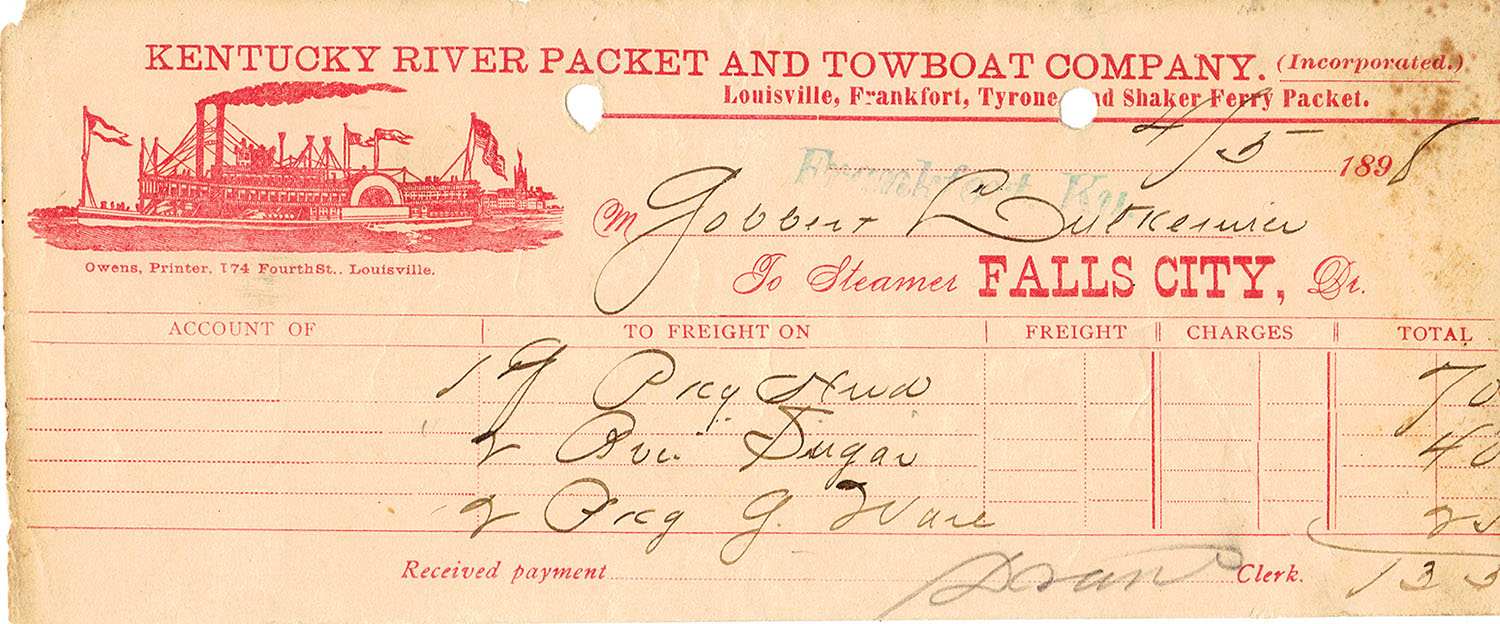 KENTUCKY RIVER PACKET AND TOWBOAT COMPANY. (Incorporated.)
Louisville, Frankfort, Tyrone and Shaker Ferry Packet.
4/5 1898
Frankfort, Ky.
M Gobbert
To Steamer FALLS CITY, Dr.
Owens, Printer, 174 Fourth St., Louisville.
ACCOUNT OF TO FREIGHT ON FREIGHT CHARGES TOTAL
19 Pkg 70
2 Sugar 40
2 Pkg G. Ware
Received payment Clerk. 133